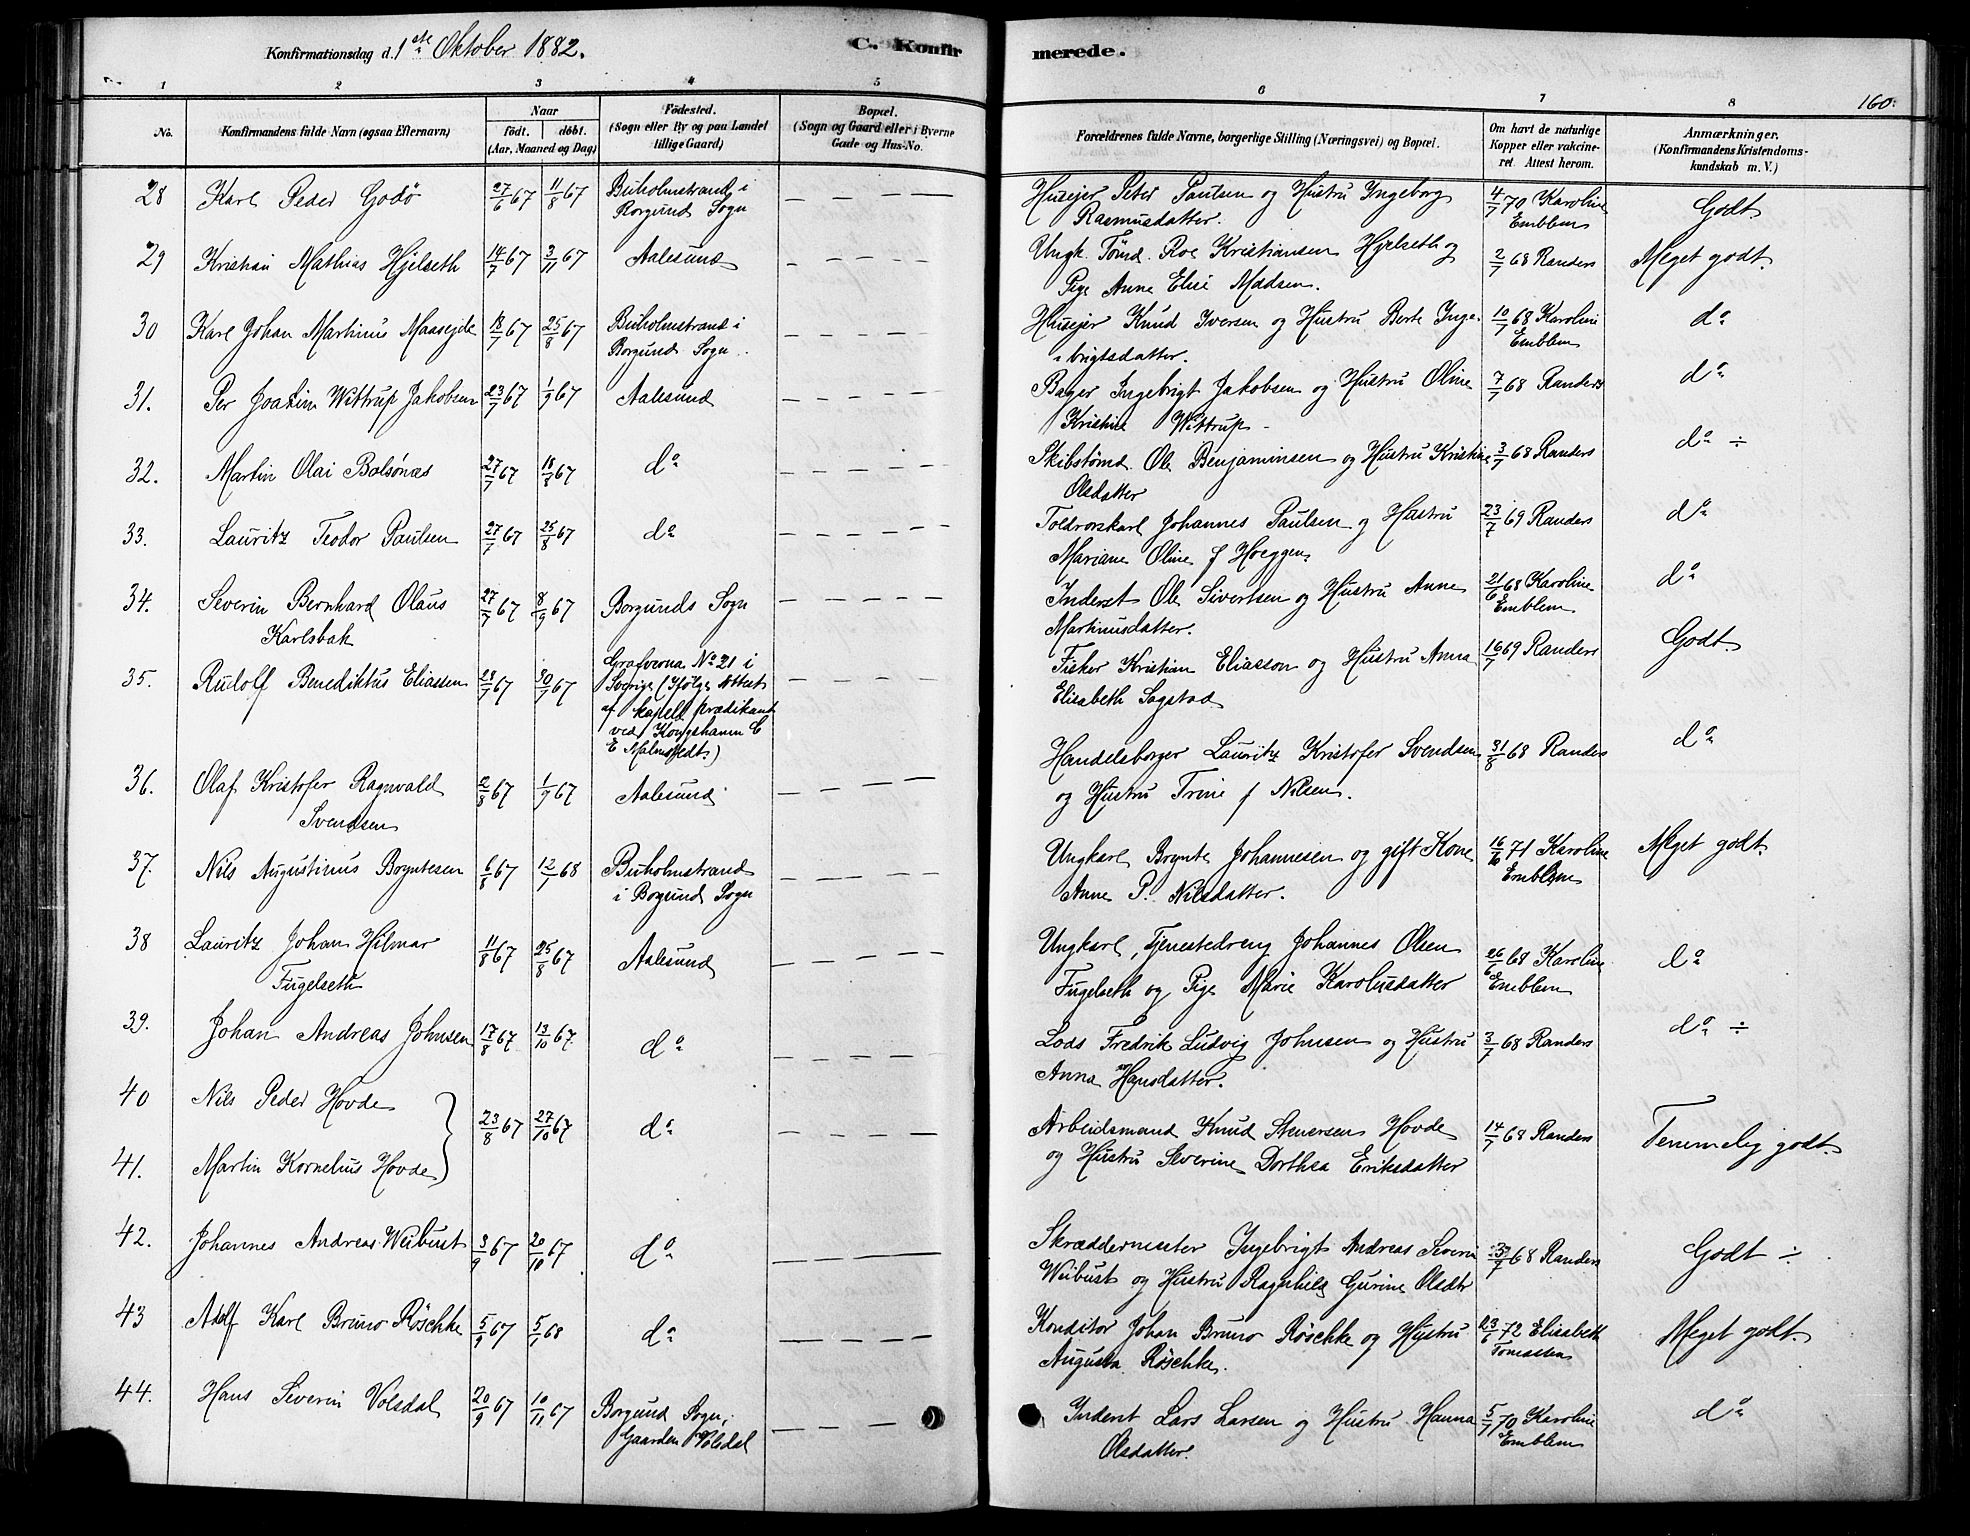 Konfirmationsdag d. 1ste Oktober 1882.
C. Konfirmerede.
160.
1 2 3 4 5 6 7 8
No.
Konfirmandens fulde Navn (ogsaa Efternavn)
Naar
født. døbt.
(Aar, Maaned og Dag)
Födested.
(Sogn eller By og paa Landet
tillige Gaard)
Bopæl.
(Sogn og Gaard eller i Byerne
Gade og Hus-No.
Forældrenes fulde Navne, borgerlige Stilling (Næringsvei) og Bopæl.
Om havt de naturlige
Kopper eller vakcine-
ret. Attest herom.
Anmærkninger.
(Konfirmandens Kristendoms-
kundskab m. V.)
28 Karl Peder Godø 27/6 67 11/8 67 Buholmstrand i
Borgund Sogn
Husejer Peter Paulsen og Hustru Ingeborg
Rasmusdatter.
4/7 70 Karoline
Emblem
Godt
29 Kristian Mathias Hjelseth 14/7 67 3/11 67 Aalesund
Ungk. Tømd. Roe Kristiansen Hjelseth og
Pige Anne Elise Madsen.
2/7 68 Randers
Meget godt.
30 Karl Johan Martinus Maasejde 18/7 67 25/8 67 Buholmstrand i
Borgund Sogn
Husejer Knud Iversen og Hustru Berte Inge-
brigtsdatter.
10/7 68 Karoline
Emblem
do
31. Per Joakim Wittrup Jakobsen 23/7 67 1/9 67 Aalesund
Bager Ingebrigt Jakobsen og Hustru Oline
Kristine Wittrup
7/7 68 Randers
do
32. Martin Olai Bolsönæs 27/7 67 18/8 67 do
Skibstømd. Ole Benjaminsen og Hustru Kristine
Olsdatter
3/7 68 Randers
do ÷
33. Lauritz Teodor Paulsen 27/7 67 25/8 67 do
Toldrorskarl Johannes Paulsen og Hustru
Mariane Oline f Hoeggen.
23/7 69 Randers
do
34. Severin Bernhard Olaus
Karlsbak
27/7 67 8/9 67 Borgunds Sogn
Inderst Ole Sivertsen og Hustru Anne
Martinusdatter.
21/6 68 Karoline
Emblem
do
35. Rudolf Benediktus Eliassen 28/7 67 30/7 67 Grafverna No 21 i
Sverige (Ifølge Attest
af kapell. Prædikant
ved Kongshamn C
E Malmstedt.)
Fisker Kristian Eliasson og Hustru Anna
Elisabeth Sogstad
16/7 69 Randers
Godt.
36. Olaf Kristofer Ragnvald
Svendsen
2/8 67 1/9 67 Aalesund
Handelsborger Lauritz Kristofer Svendsen
og Hustru Trine f Nilsen.
31/8 68 Randers
do
37. Nils Augustinus Bryntesen 6/8 67 12/1 68 Buholmstrand
i Borgund Sogn
Ungkarl Brynte Johannesen og gift Kone
Anne P. Nilsdatter.
16/10 71 Karoline
Emblem
Meget godt.
38 Lauritz Johan Hilmar
Fugelseth
11/8 67 25/8 67 Aalesund
Ungkarl, Tjenestedreng Johannes Olsen
Fugelseth og Pige Marie Karolusdatter
26/6 68 Karoline
Emblem
do
39. Johan Andreas Johnsen 17/8 67 13/10 67 do
Lods Fredrik Ludvig Johnsen og Hustru
Anna Hansdatter.
3/7 68 Randers
do ÷
40 Nils Peder Hovde
41. Martin Kornelius Hovde
23/8 67 27/10 67 do
Arbeidsmand Knud Stenersen Hovde
og Hustru Severine Dorthea Eriksdatter
14/7 68 Randers
Temmelig godt.
42. Johannes Andreas Weibust 3/9 67 20/10 67 do
Skræddermester Ingebrigt Andreas Severin
Weibust og Hustru Ragnhild Gurine Olsdtr
3/7 68 Randers
Godt ÷
43 Adolf Karl Bruno Röschke 5/9 67 5/1 68 do
Konditor Johan Bruno Röschke og Hustru
Augusta Röschke.
23/6 72 Elisabeth
Tomassen
Meget godt.
44. Hans Severin Volsdal 20/9 67 10/11 67 Borgund Sogn,
Gaarden Volsdal
Inderst Lars Larsen og Hustru Hanna
Olsdatter.
5/7 70 Karoline
Emblem
do